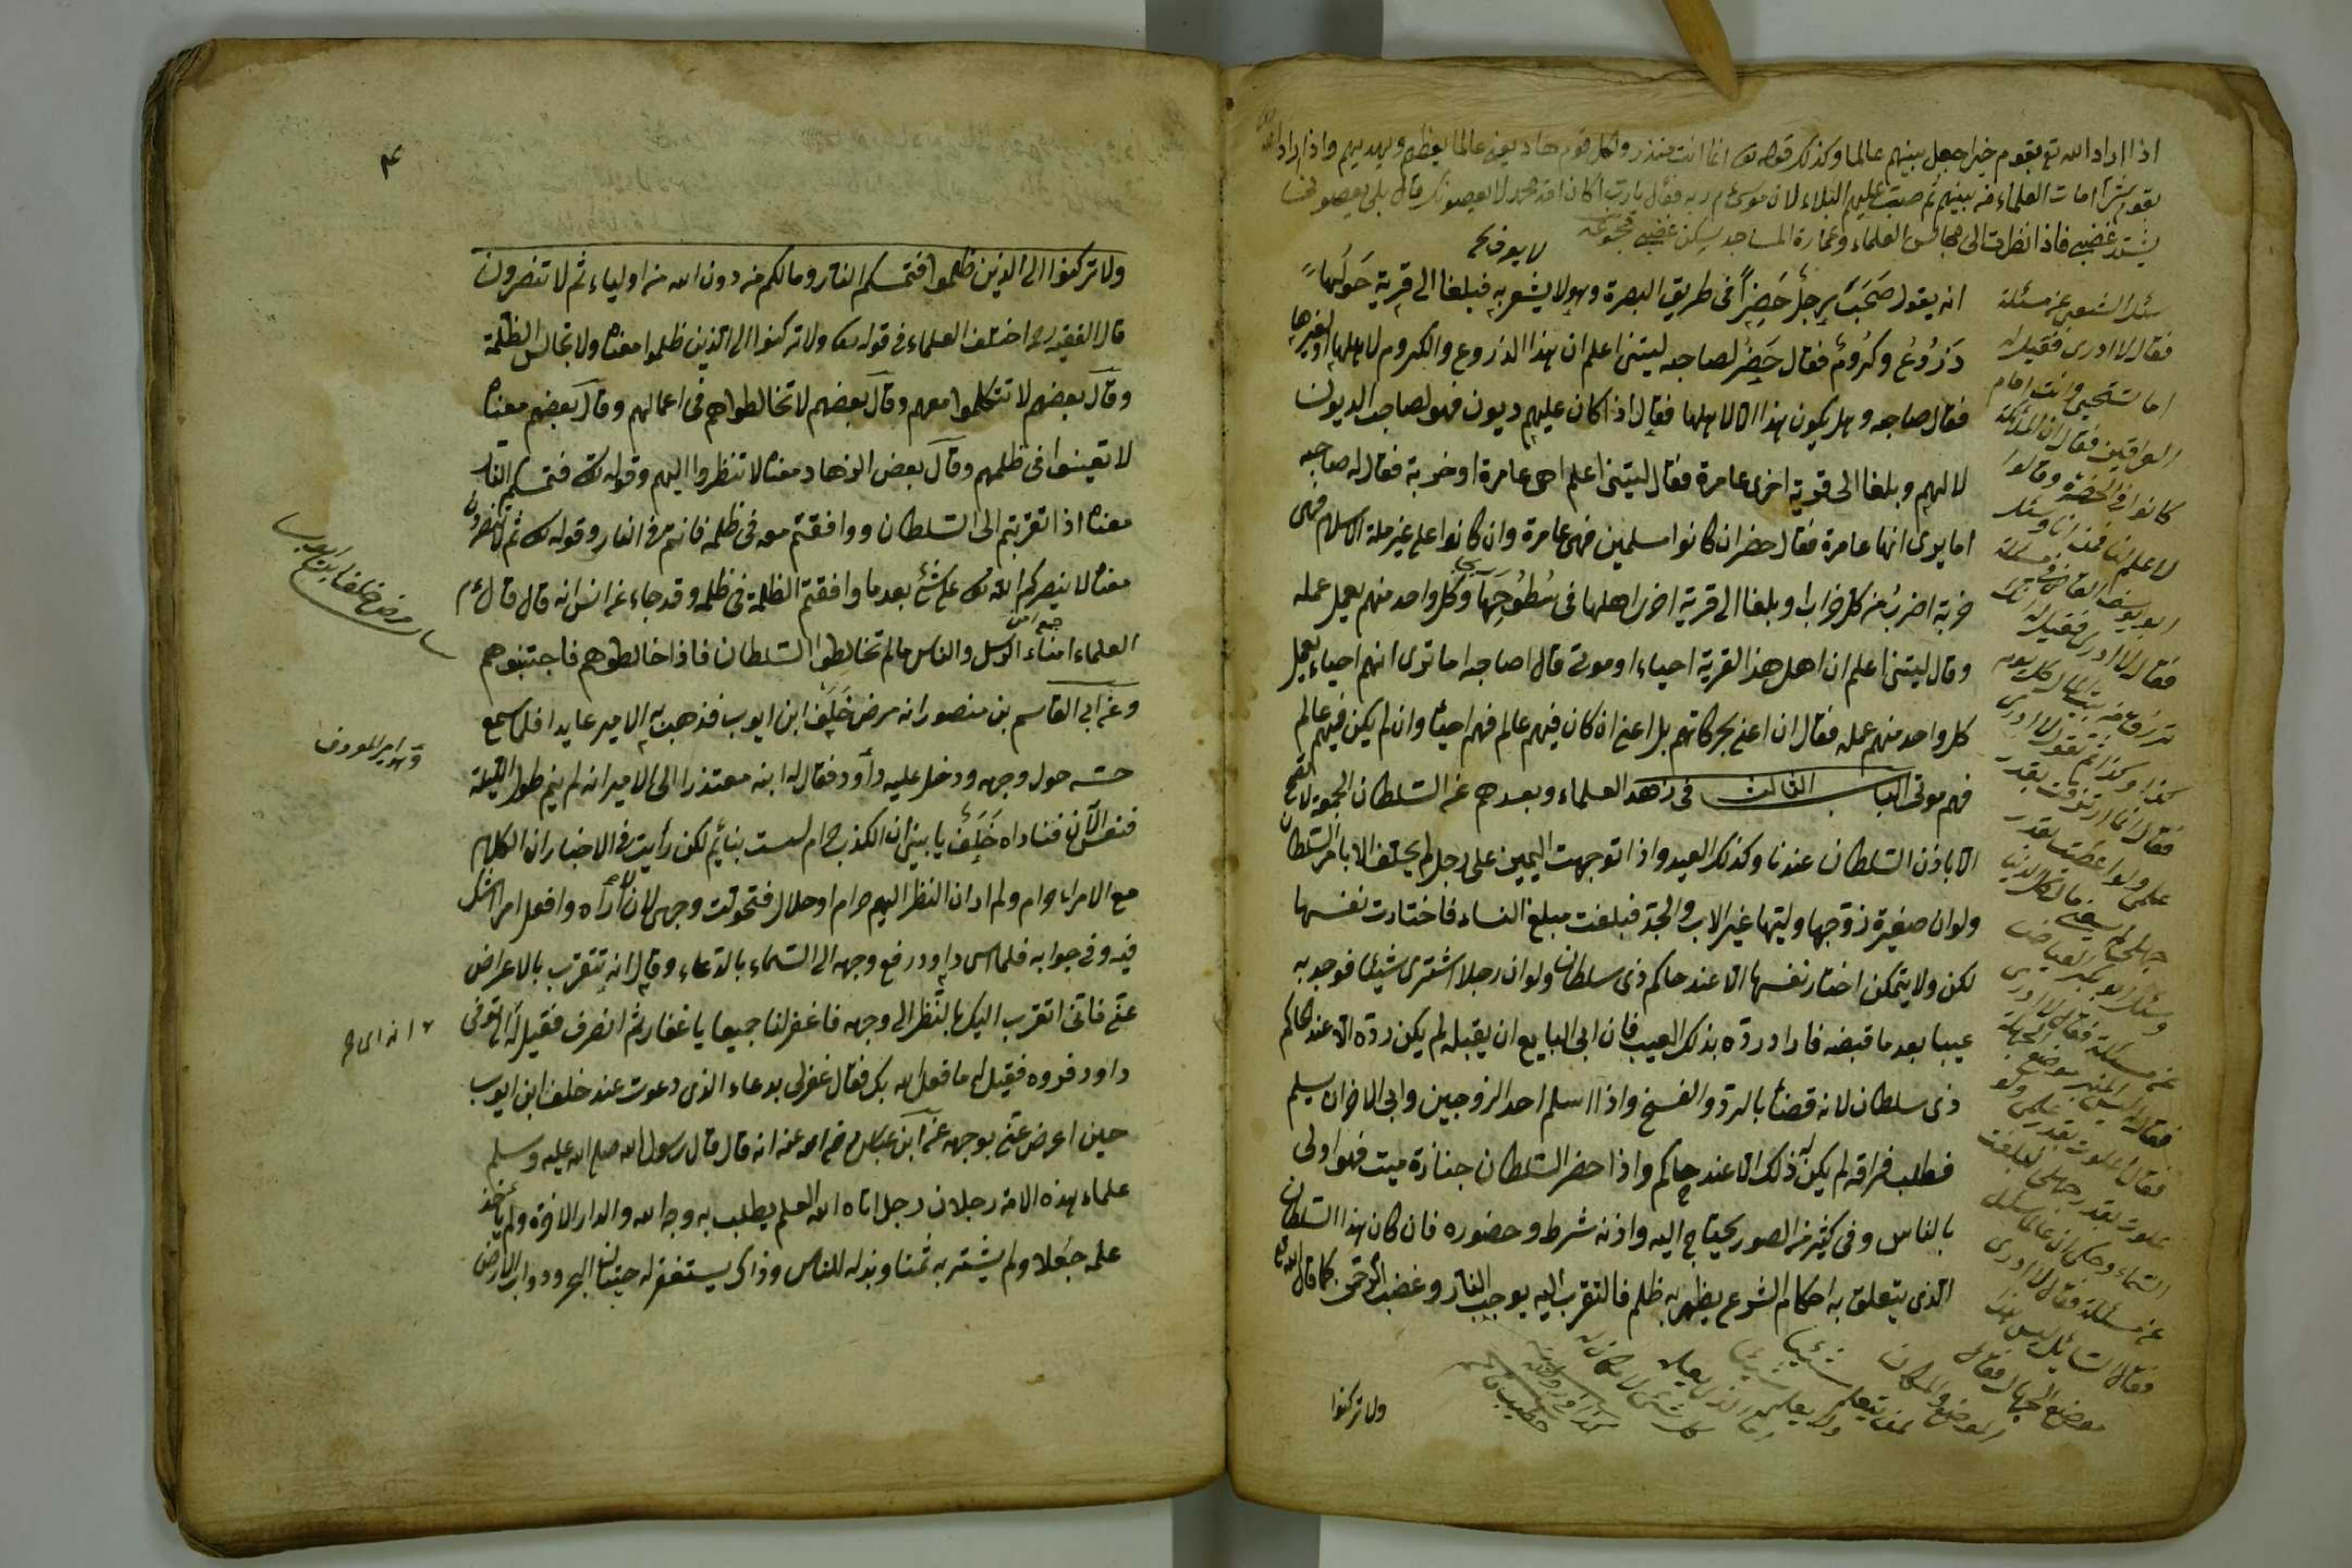 اذا اراد الله تع بقوم خيرا جعل بينهم عالما وكذلك قوله تع انما انت منذر ولكل قوم هاد يعنى عالما يعظهم ويهديهم واذا اراد الله
بقوم شرا امات العلماء من بينهم ثم صبت عليهم البلاء لان موسى ءم ربه فقال يارب اكان امة محمد لا يعصونك قال بلى يعصون فلما
يشتد غضبى فاذا نظرت الى مجالس العلماء وعمارة المساجد يسكن غضبى
لا يعرف
انه يقول صَحَبَ برجل خَضِرٌ فى طريق البصرة وهو لا يشعر به فبلغا الى قرية حَولَها
زُرُوعُ وكُرُومٌ فقال خَضِرُ لصاحبه ليتنى اعلم ان هذا الزروع والكروم لاهلها او لغيرها
فقال صاحبه وهل يكون هذا الا لاهلها فقال اذا كان عليهم ديون فهو لصاحب الديون
لا لهم وبلغا الى قرية اخرى عامرة فقال ليتنى اعلم اهى عامرة او خربة فقال له صاحبه
اما يرى انها عامرة فقال خضر ان كانوا مسلمين فهى عامرة وان كانوا على غير ملة الاسلام فهى
خربة اخرب من كل خراب وبلغا الى قرية اخرى اهلها فى سُطُوحِهَا وكل واحد منهم يعمل عمله
وقال ليتنى اعلم ان اهل هذا القرية احياء او موتى قال صاحبه اما ترى انهم احياء يعمل
كل واحد منهم عمله فقال ان اعنى بحركاتهم بل اعنى ان كان فيهم عالم فهم احياء وان لم يكن فيهم عالم
فهم موتى الباب الثالث فى زهد العلماء وبعدهم عن السلطان الجمعة لا تصح
الا باذن السلطان عندنا وكذلك العيد واذا توجهت اليمين على رجل لم يحلف الا بامر السلطان
ولو ان صغيرة زوّجها وليها غير الاب والجد فبلغت مبلغ النساء فاختارت نفسها
لكن ولا يتمكن اختار نفسها الا عند حاكم ذى سلطان ولو ان رجلا اشترى شيئا فوجد به
عيبا بعد ما قبضه فاراد ردّه بذلك العيب فان ابى البايع ان يقبله لم يكن ردّه الا عند حاكم
ذى سلطان لانه قضاء بالرد والفسخ واذا اسلم احد الزوجين وابى الاخر ان يسلم
فطلب فراقه لم يكن له ذلك الا عند حاكم واذا حضر السلطان جنازة ميت فهو اولى
بالناس وفى كثير من الصور يحتاج اليه واذنه شرط وحضوره فان كان هذا السلطان
الذى يتعلق به احكام الشرع يظهر به ظلم فالتقرب اليه يوجب النار وغضب الرحمن كما قال الله تع
ولا تركنوا
سئل الشعبى عن مسئلة
فقال لا ادرى فقيل له
اما تستحيى وانت امام
العراقين فقال ان الملائكة
كانوا فى الحضرة وقالوا
لا علم لنا فمن انا وسئل
ابو يوسف القاضى مسئلة
فقال لا ادرى فقيل له انك
ترزق من بيت المال كل يوم
كذا وكذا ثم تقول لا ادرى
فقال انما ارتزقت بقدر
علمى ولو اعطيت بقدر
جهلى لم يسعنى مال كل الدنيا
وسئل ابو بكر العياضى
عن مسئلة فقال لا ادرى
فقال ليس المنبر موضع الجهلة
فقال علوت بقدر علمى ولو
علوت بقدر جهلى لبلغت
السماء وحكى ان عالما سئل
عن مسئلة فقال لا ادرى
فقال السائل ليس هذا
موضع الجهال فقال
الموضع والمكان
لمن يعلم شيئا
ولا يعلم شيئا
الذى يعلم
كل شئ لا مكان له
٤
ولا تركنوا الى الذين ظلموا فتمسكم النار ومالكم من دون الله من اولياء ثم لا تنصرون
قال الفقيه ره اختلف العلماء فى قوله تع ولا تركنوا الى الذين ظلموا معناه ولا تجالس الظلمة
وقال بعضهم لا تتكلموا معهم وقال بعضهم لا تخالطواهم فى اعمالهم وقال بعضهم معناه
لا تعينوا فى ظلمهم وقال بعض الزهاد معناه لا تنظروا اليهم وقوله تع فتمسكم النار
معناه اذا تقربتم الى السلطان ووافقتم معه فى ظلمه فانتم فى النار وقوله تع ثم لا تنصرون
معناه لا ينصركم الله تع على شئ بعد ما وافقتم الظلمة فى ظلمه وقد جاء عن انس انه قال قال ءم
جمع امين
العلماء امناء الرسل والناس مالم تخالطوا السلطان فاذا خالطوهم فاجتنبوهم
وعن ابى القاسم بن منصور انه مرض خَلَف ابن ايوب فذهب به الامير عايدا فلما سمع
حسه حول وجهه ودخل عليه داود فقال له ابنه معتذرا الى الامير انه لم ينم طول الليلة
فنعس الآن فناداه خَلَف يا بنى ان الكذب حرام لست بنايم لكن رأيت فى الاخبار ان الكلام
مع الامراء حرام ولم ادر ان النظر اليهم حرام او حلال فتحولت وجهى لان لا اراه وافعل امر الشك
فيه وفى جوابه فلما سمى داود رفع وجهه الى السماء بالدعاء وقال انه تتقرب بالاعراض
عنى فانى اتقرب اليك بالنظر الى وجهه فاغفر لنا جميعا يا غفار ثم انصرف فقيل له انه توفى
داود فروه فقيل له ما فعل الله بك فقال غفر لى بدعاء الذى دعوت عند خلف ابن ايوب
حين اعرض عنى بوجهه عن ابن عباس رضى الله عنه انه قال قال رسول الله صلى الله عليه وسلم
علماء هذه الامة رجلان رجل اتاه الله العلم يطلب به وجه الله والدار الاخرة ولم ياخذ
علمه جُعلا ولم يشتر به ثمنا وبذله للناس وذاك يستغفر له حيتان البحر ودواب الارض
مرض خلف ابن ايوب